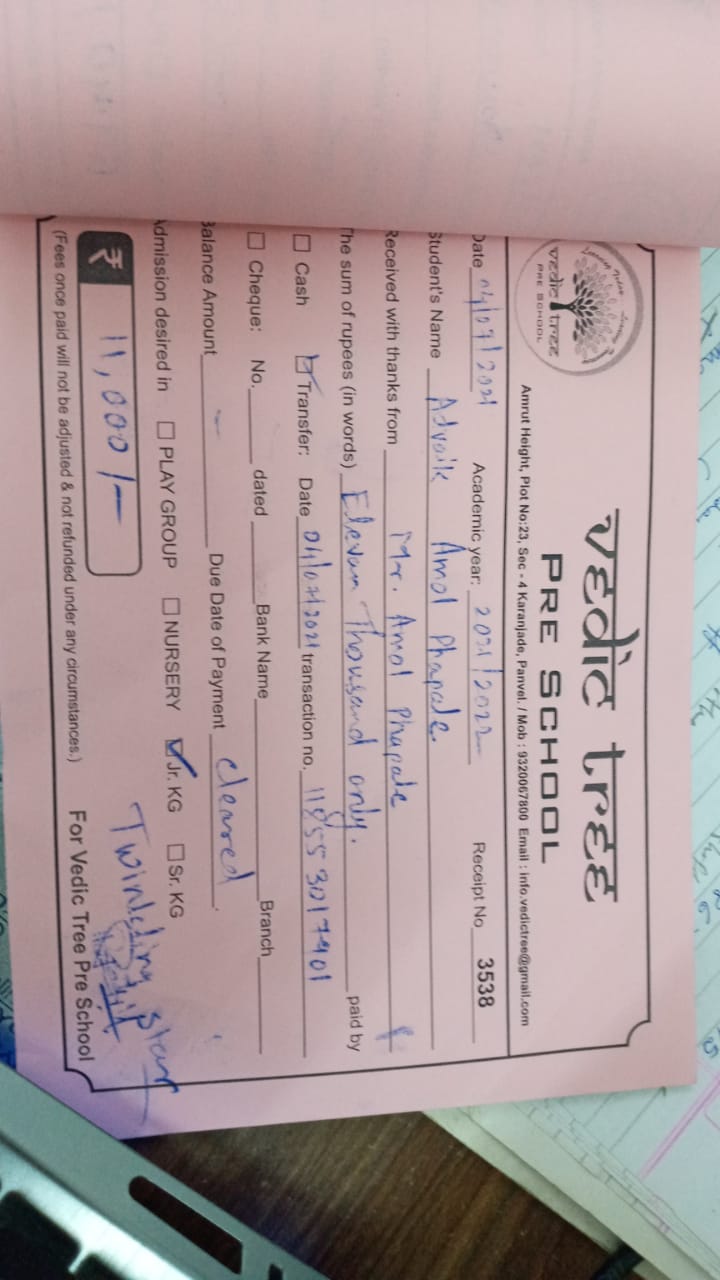 vedic tree
PRE SCHOOL
vedic tree
PRE SCHOOL
Amrut Height, Plot No:23, Sec - 4 Karanjade, Panvel. / Mob : 9320067800 Email : info.vedictree@gmail.com
Date 04/07/2021 Academic year: 2021/2022 Receipt No 3538
Student's Name Advaik Amol Phapale
Received with thanks from Mr. Amol Phapale
The sum of rupees (in words) Elevan Thousand only. paid by
☐ Cash ☑ Transfer: Date 04/07/2021 transaction no. 118553017901
☐ Cheque: No. dated Bank Name Branch
Balance Amount - Due Date of Payment cleared.
Admission desired in ☐ PLAY GROUP ☐ NURSERY ☑ Jr. KG ☐ Sr. KG
Twinkling star
₹ 11,000/-
(Fees once paid will not be adjusted & not refunded under any circumstances.) For Vedic Tree Pre School